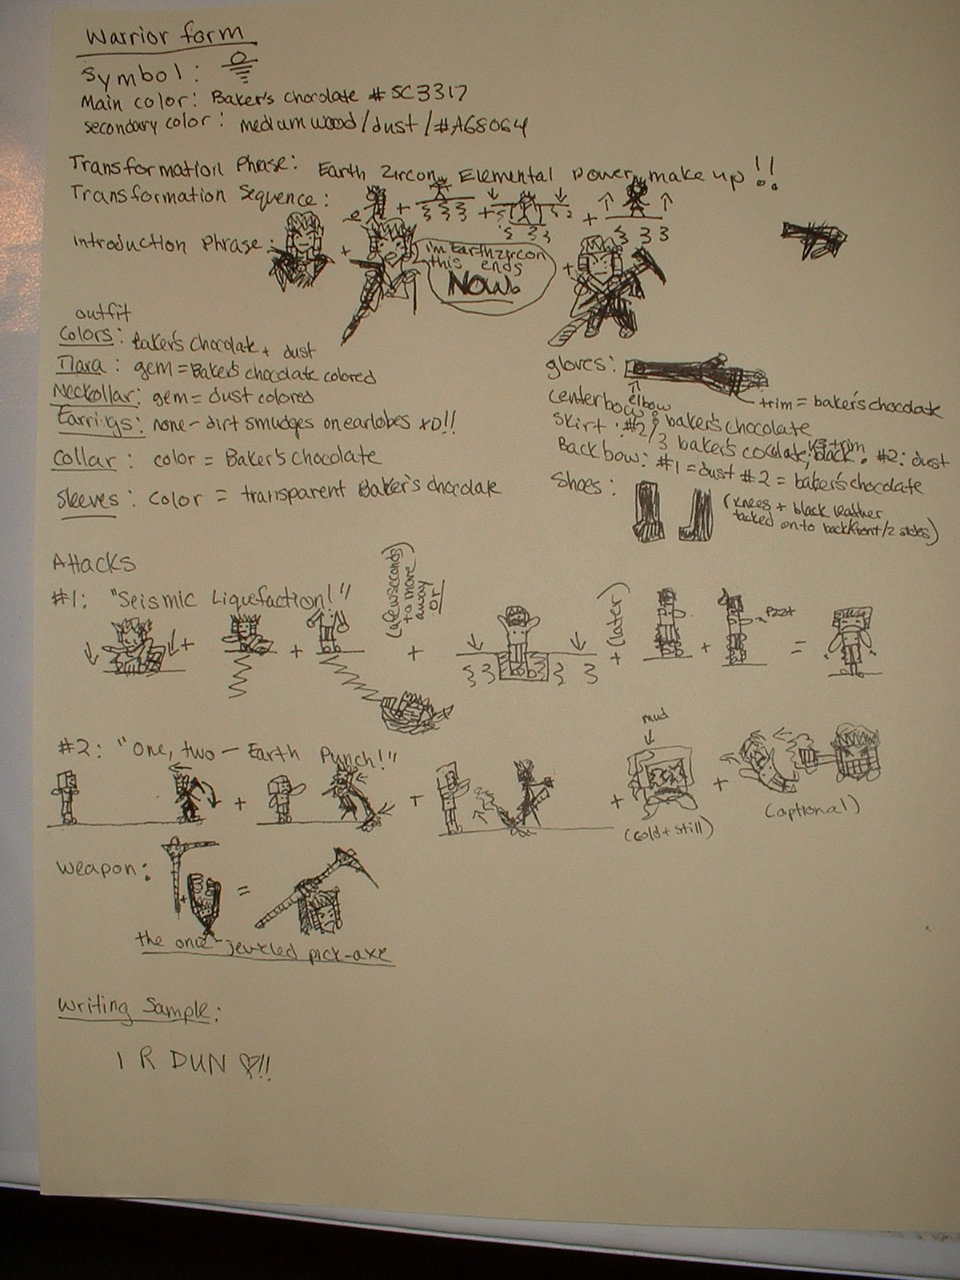 Warrior form
Symbol:
Main color: Baker's chocolate #5C3317
secondary color: medium wood/dust/#A68064
Transformation Phase: Earth Zircon, Elemental Power, make up!!
Transformation Sequence:
Introduction Phrase:
i'm Earth zircon
this ends
NOW.
outfit
Colors: Baker's chocolate + dust
Tiara: gem = Baker's chocolate colored
Neckollar: gem = dust colored
Earrigs: none - dirt smudges on earlobes xD!!
Collar: color = Baker's chocolate
Sleeves: color = transparent Baker's chocolate
gloves:
elbow
trim = baker's chocolate
centerbow: baker's chocolate
Skirt: #2/3 baker's cocolate, black #2: dust
Back bow: #1 = dust #2 = baker's chocolate
Shoes:
(knees + black leather
tacked on to back/front/2 sides)
Attacks
#1: "Seismic Liquefaction!"
(a few seconds
to move
away
or)
(later)
Pzzt
#2: "One, two - Earth Punch!"
mud
(cold + still)
(optional)
Weapon:
the once-jeweled pick-axe
Writing Sample:
I R DUN ♡!!